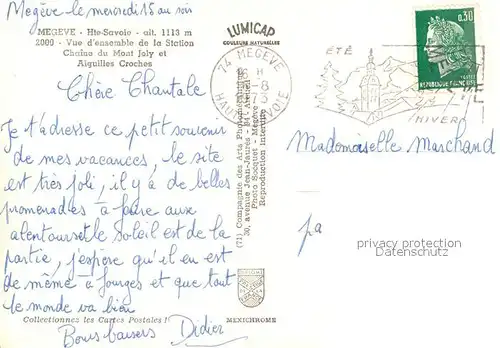 Megève le mercredi 15 au soir
MEGEVE - Hte-Savoie - alt. 1113 m
2000 - Vue d'ensemble de la Station
Chaîne du Mont Joly et
Aiguilles Croches
Chère Chantale
Je t'adresse ce petit souvenir
de mes vacances, le site
est très joli, il y a de belles
promenades à faire aux
alentours et le soleil est de la
partie, j'espère qu'il en est
de même à Fourges et que tout
le monde va bien
Bons baisers Didier
Collectionnez les Cartes Postales !
MEXICHROME
LUMICAP
COULEURS NATURELLES
(71) Compagnie des Arts Photomécaniques
50, Avenue Jean-Jaurès - 94 - Arcueil
Photo Socquet - Megève
Reproduction Interdite
74 MEGEVE
16 H
-8
HAUTE SAVOIE
ÉTÉ
HIVER
0,30
REPUBLIQUE FRANÇAISE
POSTES
Mademoiselle Marchand
privacy protection
Datenschutz